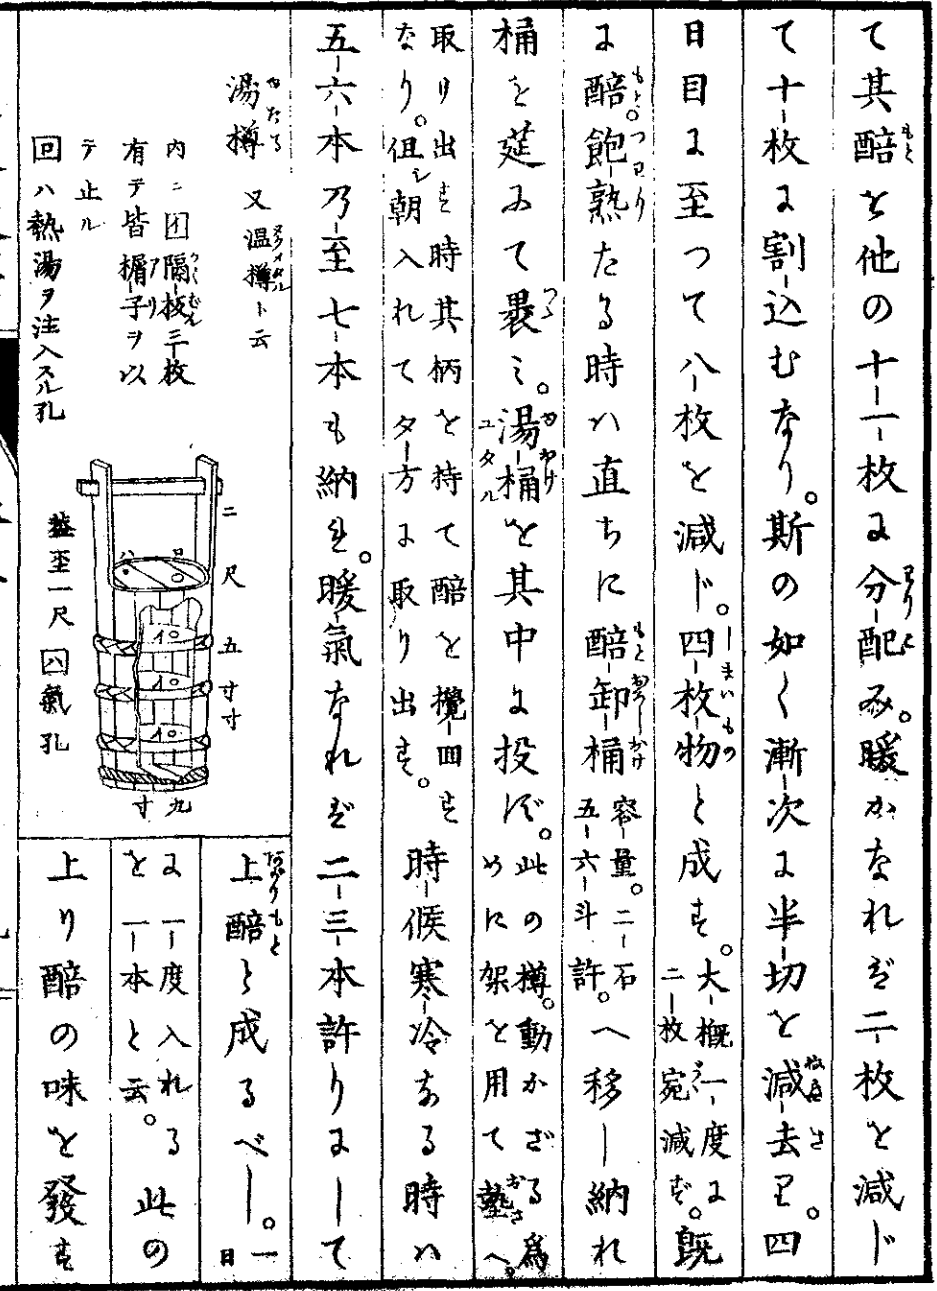 て其醅を他の十一枚に分配み。暖かなれバ二枚を減ド
て十枚に割込むなり。斯の如く漸次に半切を減去し。四
日目に至つて八枚を減ド。四枚物と成す。大概一度に
二枚宛減ず。既
に醅。飽熟たる時ハ直ちに醅卸桶容量。二石
五六斗許。へ移し納れ
桶を莚みて褁ミ。湯桶を其中に投ず。此の樽。動かざる為
めに架を用て墊へ。
取り出す時其柄を持て醅を攪回す
なり。但シ朝入れて夕方に取り出す。時候寒冷なる時ハ
五六本乃至七本も納る。暖氣なれバ二三本許りにして
上醅と成るべし。一日
に一度入れる
を一本と云。此の
上り醅の味を發す
湯樽 又温樽ト云
内ニ囗隔板三枚
有テ皆楣子ヲ以
テ止ル
回ハ熱湯ヲ注入スル孔
二尺五寸
九寸
蓋至一尺
氣孔